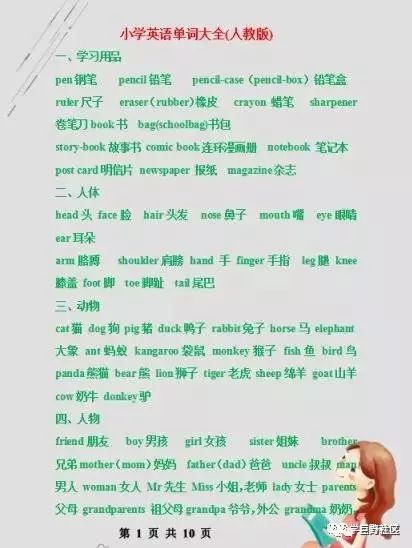 小学英语单词大全(人教版)
一、学习用品
pen 钢笔 pencil 铅笔 pencil-case（pencil-box）铅笔盒
ruler 尺子 eraser（rubber）橡皮 crayon 蜡笔 sharpener
卷笔刀 book 书 bag(schoolbag)书包
story-book 故事书 comic book 连环漫画册 notebook 笔记本
post card 明信片 newspaper 报纸 magazine 杂志
二、人体
head 头 face 脸 hair 头发 nose 鼻子 mouth 嘴 eye 眼睛
ear 耳朵
arm 胳膊 shoulder 肩膀 hand 手 finger 手指 leg 腿 knee
膝盖 foot 脚 toe 脚趾 tail 尾巴
三、动物
cat 猫 dog 狗 pig 猪 duck 鸭子 rabbit 兔子 horse 马 elephant
大象 ant 蚂蚁 kangaroo 袋鼠 monkey 猴子 fish 鱼 bird 鸟
panda 熊猫 bear 熊 lion 狮子 tiger 老虎 sheep 绵羊 goat 山羊
cow 奶牛 donkey 驴
四、人物
friend 朋友 boy 男孩 girl 女孩 sister 姐妹 brother
兄弟 mother（mom）妈妈 father（dad）爸爸 uncle 叔叔 man
男人 woman 女人 Mr 先生 Miss 小姐,老师 lady 女士 parents
父母 grandparents 祖父母 grandpa 爷爷,外公 grandma 奶奶,
第 1 页 共 10 页
学巨野社区